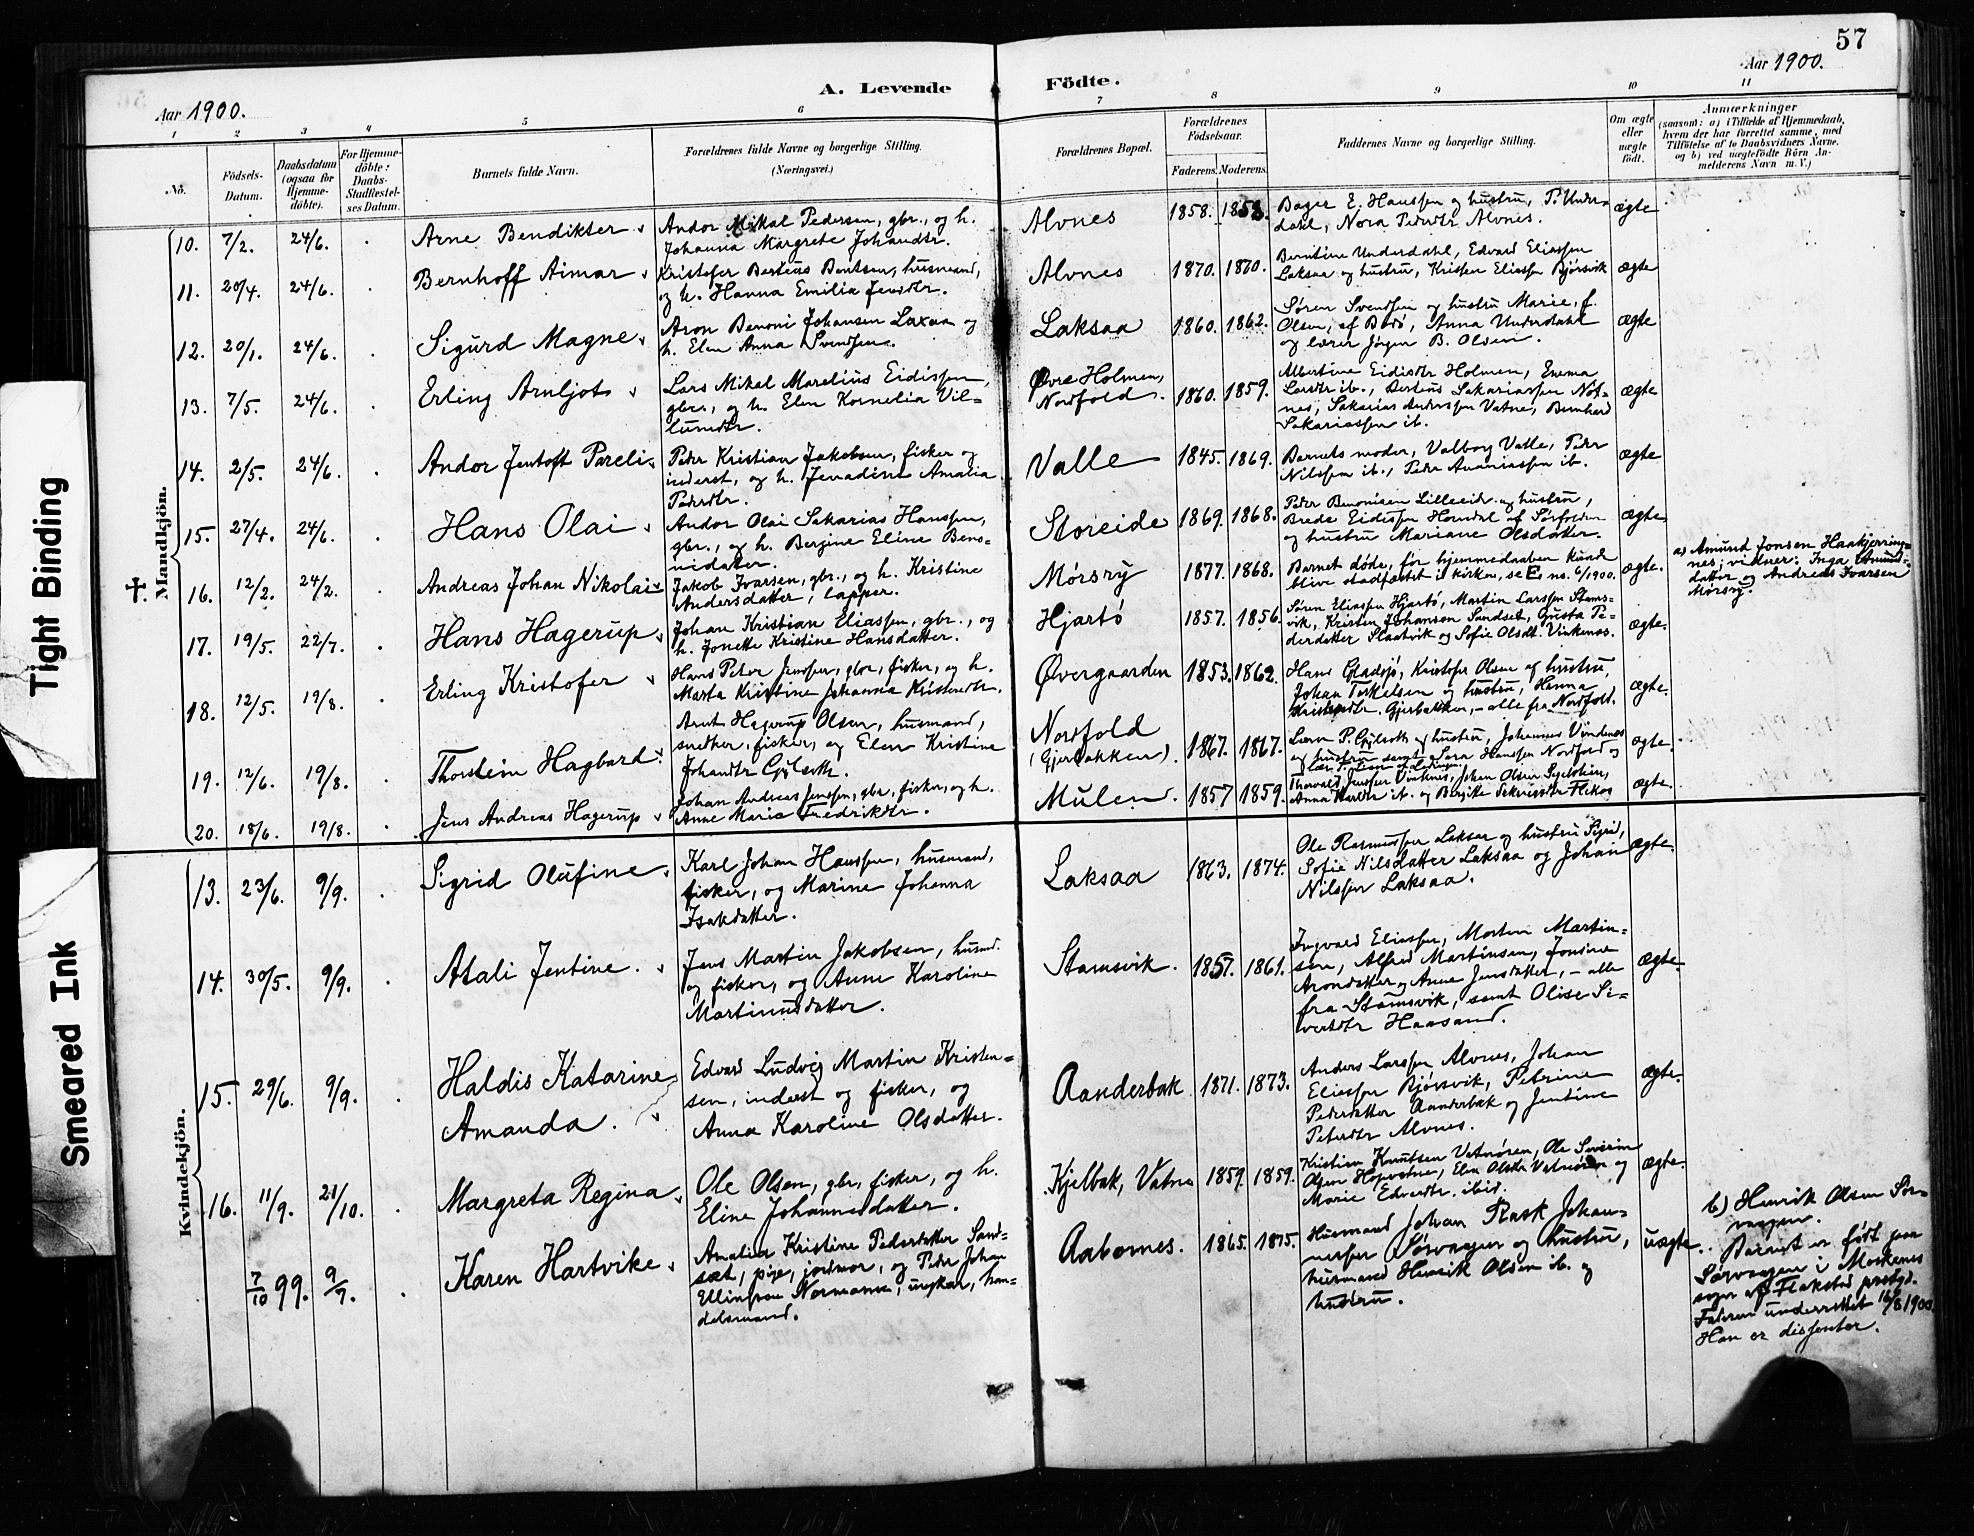 57
Aar 1900.
A. Levende Födte.
Aar 1900.
1 2 3 4 5 6 7 8 9 10 11
No.
Födsels-Datum.
Daabsdatum (ogsaa for Hjemme-döbte).
For Hjemme-döbte: Daabs-Stadfæstel-ses Datum.
Barnets fulde Navn.
Forældrenes fulde Navne og borgerlige Stilling.
(Næringsvei.)
Forældrenes Bopæl.
Forældrenes Födselsaar.
Faderens. Moderens.
Faddernes Navne og borgerlige Stilling.
Om ægte eller uægte födt.
Anmærkninger
(saasom: a) i Tilfælde af Hjemmedaab,
hvem der har forrettet samme, med
Tilföielse af to Daabsvidners Navne,
og b) ved uægtefödte Börn An-
melderens Navn m. V.)
Mandkjön.
10. 7/2. 24/6. Arne Bendikter
Andor Mikal Pedersen, gbr., og h.
Johanna Margrete Johandtr.
Alvnes 1858. 1858.
Bager E. Hanssen og hustru, P. Under-
dahl, Nora Pedrdtr Alvnes.
ægte
11. 20/4. 24/6. Bernhoff Aimar
Kristofer Berteus Bentsen, husmand,
og h. Hanna Emilia Jensdtr.
Alvnes 1870. 1870.
Berntine Underdahl, Edvard Eliassen
Laksaa og hustru, Kristen Eliassen Bjørsvik
ægte
12. 20/1. 24/6. Sigurd Magne
Aron Benoni Johansen Laxaa og
h. Elen Anna Svendsen.
Laksaa 1860. 1862.
Søren Svendsen og hustru Marie, f.
Olsen, af Bodø, Anna Underdahl
og lærer Jørgen B. Olsen.
ægte
13. 7/5. 24/6. Erling Arnljot
Lars Mikal Marelius Eidissen,
gbr., og h. Elen Kornelia Vil-
lumdtr.
Øvre Holmen,
Nordfold. 1860. 1859.
Albertine Eidisdtr Holmen, Emma
Larsdtr ib., Berteus Sakariassen Not-
nes, Sakarias Anderssen Vatne, Bernhard
Sakariassen ib.
ægte
14. 2/5. 24/6. Andor Jentoft Pareli
Peder Kristian Jakobsen, fisker og
inderst, og h. Jenadine Amalia
Pedrdtr.
Valle 1845. 1869.
Barnets moder, Valborg Valle, Peder
Nilssen ib., Peder Ananiassen ib.
ægte
15. 27/4. 24/6. Hans Olai
Andor Olai Sakarias Hanssen,
gbr., og h. Bergine Eline Beno-
nidatter.
Storeide 1869. 1868.
Peder Benonisen Lilleeide og hustru,
Brede Eidissen Horndal af Sørfolden
og hustru Mariane Olsdatter.
ægte
†. 16. 12/2. 24/2. Andreas Johan Nikolai
Jakob Ivarsen, gbr., og h. Kristine
Andersdatter, lapper.
Mørsry 1877. 1868.
Barnet døde, før hjemmedaaben kunde
blive stadfæstet i kirken, se E, no. 6/1900.
ægte.
a) Amund Jonsen Haakjerring-
nes; vidner: Inga Amund-
datter og Andreas Ivarsen
Mørsry.
17. 19/5. 22/7. Hans Hagerup
Johan Kristian Eliassen, gbr., og
h. Jonette Kristine Hansdatter.
Hjartö 1857. 1856.
Søren Eliassen Hjartö, Martin Larssen Stams-
vik, Kristen Johansen Sandset, Gusta Pe-
dersdatter Slaatvik og Sofie Olsdt. Vinkenes.
ægte.
18. 12/5. 19/8. Erling Kristofer
Hans Peter Jenssen, gbr., fisker, og h.
Marta Kristine Johanna Kristendtr.
Øvergaarden 1853. 1862.
Hans Gladsjø, Kristofer Olsen og hustru,
Johan Torkelsen og hustru, Hanna
Kristendtr. Gjerbakken, – alle fra Nordfold.
ægte.
19. 12/6. 19/8. Thorstein Hagbard
Arnt Hagerup Olsen, husmand,
snedker, fisker, og Elen Kristine
Johandtr
Nordfold
(Gjerbakken). 1867. 1867.
og hustru, Johannes Vindenes
og hustru samt Sara Hanssen Nordfold og
ægte.
20. 18/6. 19/8. Jens Andreas Hagerup
Johan Andreas Jenssen, gbr., fisker, og h.
Anne Marie Fredrikdtr.
Mulen. 1857 1859.
Thorvald Jenssen Vinknes, Johan Olsen
ægte.
Kvindekjön.
13. 23/6. 9/9. Sigrid Olufine
Karl Johan Hanssen, husmand,
fisker, og Marine Johanna
Isakdatter.
Laksaa 1863. 1874.
Ole Rasmussen Laksaa og hustru Sigrid,
Sofie Nilsdatter Laksaa og Johan
Nilssen Laksaa.
ægte.
14. 30/5. 9/9. Atali Jentine.
Jens Martin Jakobsen, husmd.
og fisker, og Anne Karoline
Martinusdatter.
Stamsvik. 1857. 1861.
Ingvald Eliassen, Morten Martin-
sen, Alfred Martinsen, Jonsine
Arondatter og Anne Jensdatter, – alle
fra Stamsvik, samt Olise Si-
vertdtr Haasand.
ægte.
15. 29/6. 9/9. Haldis Katarine
Amanda.
Edvard Ludvig Martin Kristen-
sen, inderst og fisker, og
Anna Karoline Olsdatter.
Aanderbak 1871. 1873.
Anders Larssen Alvnes, Johan
Eliassen Bjørsvik, Petrine
Pedersdatter Aanderbak og Jentine
Petersdtr Alvnes.
ægte.
16. 11/9. 21/10. Margreta Regina
Ole Olsen, gbr., fisker, og h.
Eline Johannesdatter.
Kjelbak, Vatne 1859. 1859.
Kristian Knutsen Vatnøsen, Ole Severin
Olsen Hopvatne, Elen Olsdtr Vatnøsen og
Marie Edvardtr. ibid.
ægte.
7/10 99. 9/7. Karen Hartvike
Amalia Kristine Pedersdatter Sand-
sæt, pige, jordmor, og Peder Johan
Ellingsen Normann, ungkar, han-
delsmand.
Aabornes. 1865. 1875.
Husmand Johan Rask Johan-
nessen Sørvaagen og hustru,
husmand Henrik Olsen ib. og
hustru.
uægte.
b) Henrik Olsen Sør-
vaagen.
Barnet er født paa
Sørvaagen i Moskenes
sogn af Flakstad prstgd.
Faderen underrettet 16/8 1900.
Han er dissenter.
Tight Binding
Smeared Ink